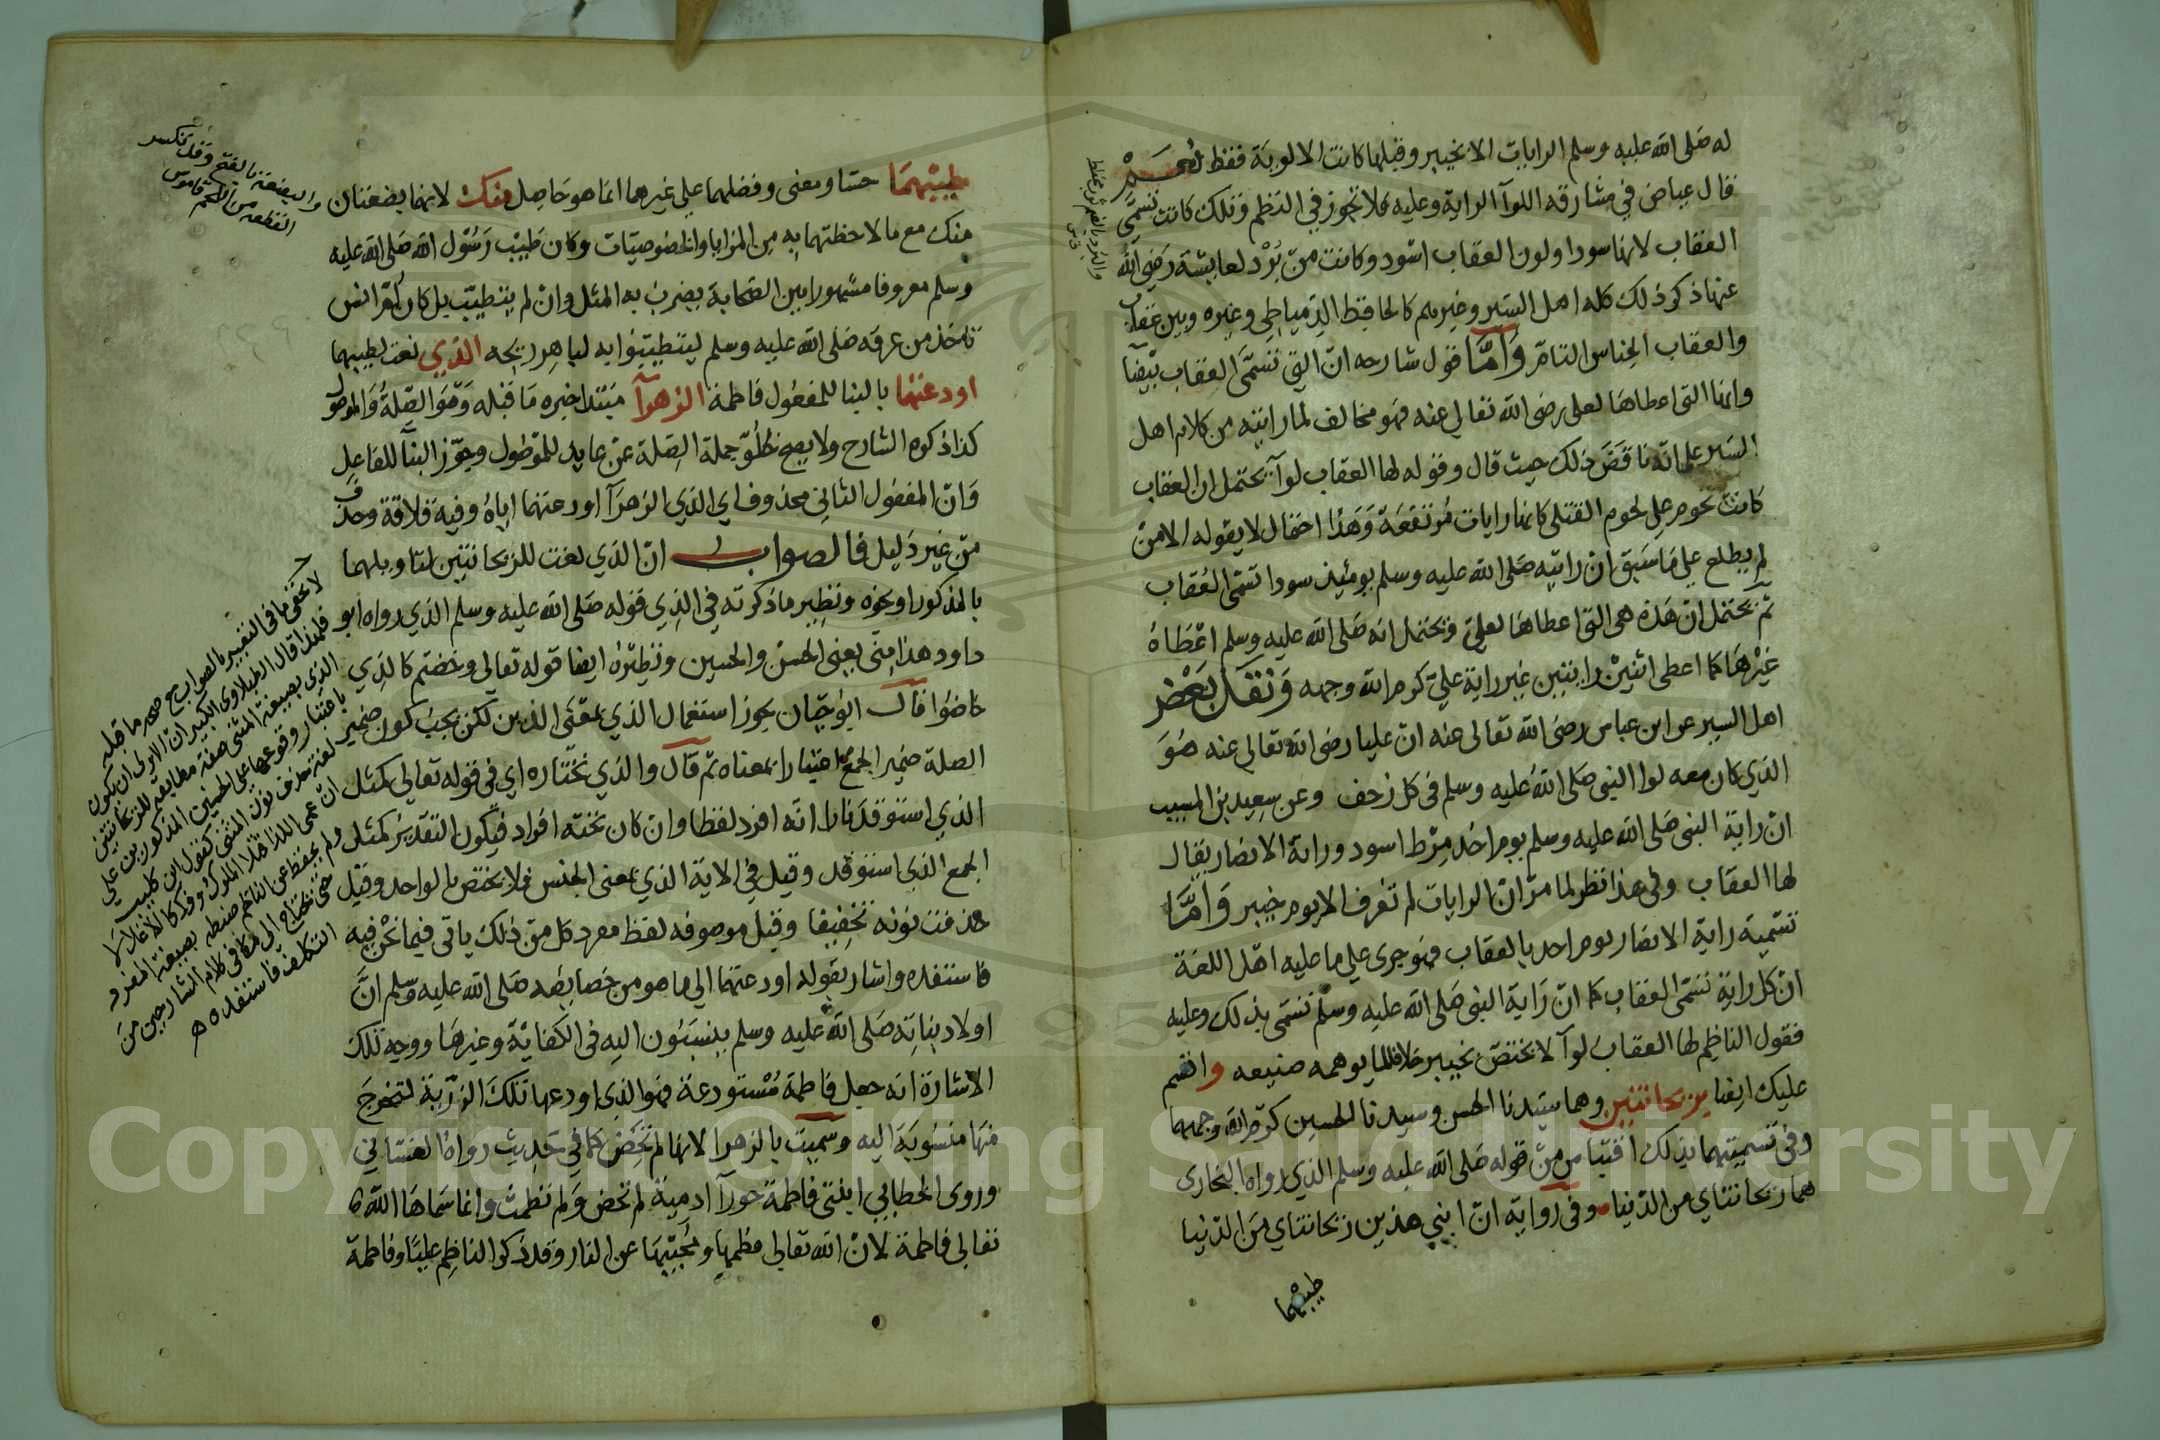 له صلى الله عليه وسلم الرايات الا بخيبر وقبلها كانت الالوية فقط نعم
قال عياض في مشارقه اللوآ الراية وعليه فلا تجوز في النظم وتلك كانت تسمى
العقاب لانها سودا ولون العقاب اسود وكانت من برد لعايشة رضى الله
عنها ذكر ذلك كله اهل السير وغيرهم كالحافظ الدمياطي وغيره وبين عقاب
والعقاب الجناس التام وأما قول شارحه ان التي تسمى العقاب بيضا
وانها التى اعطاها لعلى رضى الله تعالى عنه فهو مخالف لما رايته من كلام اهل
السير على انه ناقض ذلك حيث قال وقوله لها العقاب لوآ يحتمل ان العقاب
كانت تحوم على لحوم القتلى كانها رايات مرتفعة وهذا احتمال لا يقوله الا من
لم يطلع على ما سبق ان رايته صلى الله عليه وسلم يومئذ سودا تسمى العقاب
ثم يحتمل ان هذه هى التى اعطاها لعلي ويحتمل انه صلى الله عليه وسلم اعطاه
غيرها كما اعطى اثنين رايتين غير راية علي كرم الله وجهه ونقل بعض
اهل السير عن ابن عباس رضى الله تعالى عنه ان عليا رضى الله تعالى عنه هو
الذي كان معه لوا النبى صلى الله عليه وسلم فى كل زحف وعن سعيد بن المسيب
ان راية النبى صلى الله عليه وسلم يوم احد مرط اسود وراية الانصار يقال
لها العقاب وفى هذا نظر لما مر ان الرايات لم تعرف الا يوم خيبر وأما
تسمية راية الانصار يوم احد بالعقاب فهو جرى على ما عليه اهل اللغة
ان كل راية تسمى العقاب كما ان راية النبى صلى الله عليه وسلم تسمى بذلك وعليه
فقول الناظم لها العقاب لوآ لا يختص بخيبر خلافا لما يوهمه صنيعه و اقسم
عليك ايضا بريحانتين وهما سيدنا الحسن وسيدنا الحسين كرم الله وجههما
وفى تسميتهما بذلك اقتباس من قوله صلى الله عليه وسلم الذي رواه البخارى
هما ريحانتاي من الدنيا وفى رواية ان ابني هذين ريحانتاي من الدنيا
طيبهما
والبرد بالضم ثوب مخطط
طيبهما حسا ومعنى وفضلهما على غيرهما انما هو حاصل منك لانهما بضعتان
منك مع ما لاحظتهما به من المزايا والخصوصيات وكان طيب رسول الله صلى الله عليه
وسلم معروفا مشهورا بين الصحابة يضرب به المثل وان لم يتطيب بل كان ام انس
تاخذ من عرقه صلى الله عليه وسلم ليتطيبوا به لباهر ريحه الذي نعت لطيبهما
اودعتهما بالبنا للمفعول فاطمة الزهرآ مبتدا خبره ما قبله وهو الصلة والموصول
كذا ذكره الشارح ولا يصح لخلو جملة الصلة عن عايد للموصول وجوز البنآ للفاعل
وان المفعول الثاني محذوف اي الذي الزهرآ اودعتهما اياه وفيه قلاقة وحذف
من غير دليل فالصواب ان الذي نعت للريحانتين لتاويلهما
بالمذكور او نحوه ونظير ما ذكرته في الذي قوله صلى الله عليه وسلم الذي رواه ابو
داود هذا مني يعني الحسن والحسين ونظيره ايضا قوله تعالى وخضتم كالذي
خاضوا قال ابو حيان يجوز استعمال الذي بمعنى الذين لكن يجب كون ضمير
الصلة ضمير الجمع اعتبارا بمعناه ثم قال والذي نختاره اي في قوله تعالى كمثل
الذي استوقد نارا انه افرد لفظا وان كان تحته افراد فيكون التقدير كمثل
الجمع الذي استوقد وقيل في الاية الذي بمعنى الجنس فلا يختص بالواحد وقيل
حذفت نونه تخفيفا وقيل موصوفه لفظ مفرد كل من ذلك ياتى فيما نحن فيه
فاستفده واشار بقوله اودعتهما الى ما هو من خصايصه صلى الله عليه وسلم ان
اولاد بناته صلى الله عليه وسلم ينسبون اليه فى الكفائة وغيرها ووجه تلك
الاشارة انه جعل فاطمة مستودعة فهو الذي اودعها تلك الذرية لتخرج
منها منسوبة اليه وسميت بالزهرا لانها لم تحض كما في حديث رواه الغساني
وروى الخطابي ابنتى فاطمة حورآ ادمية لم تحض ولم تطمث وانما سماها الله
تعالى فاطمة لان الله تعالى فطمها ومحبيها عن النار وقد ذكر الناظم عليا وفاطمة
والبضعة بالفتح وقد تكسر
القطعة من اللحم قاموس
لا يخفى ما فى التعبير بالصواب مع صحة ما قبله
فلهذا قال الطبلاوى الكبير ان الاولى ان يكون
الذي بصيغة المثنى صفة مطابقة للريحانتين
باعتبار وقوعهما على الحسنين المذكورين على
لغة حذف نون المثنى كقول ابن كليب
ان عمى اللذا قتلا الملوك وفككا الاغلالا
ولم يحفظ عن الناظم ضبطه بصيغة المفرد
حتى نحتاج الى ما فى كلام الشارحين من
التكلف فاستفده ه